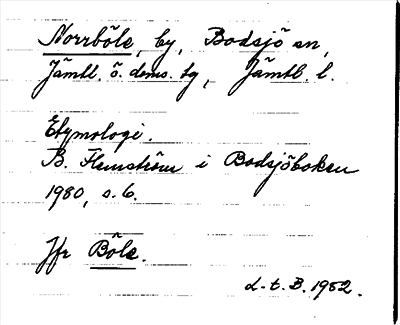 Norrböle, by, Bodsjö sn,
Jämtl. ö. doms. tg, Jämtl. l.
Etymologi.
B. Flemström i Bodsjöboken
1980, s. 6.
Jfr Böle.
L.-t. B. 1982.